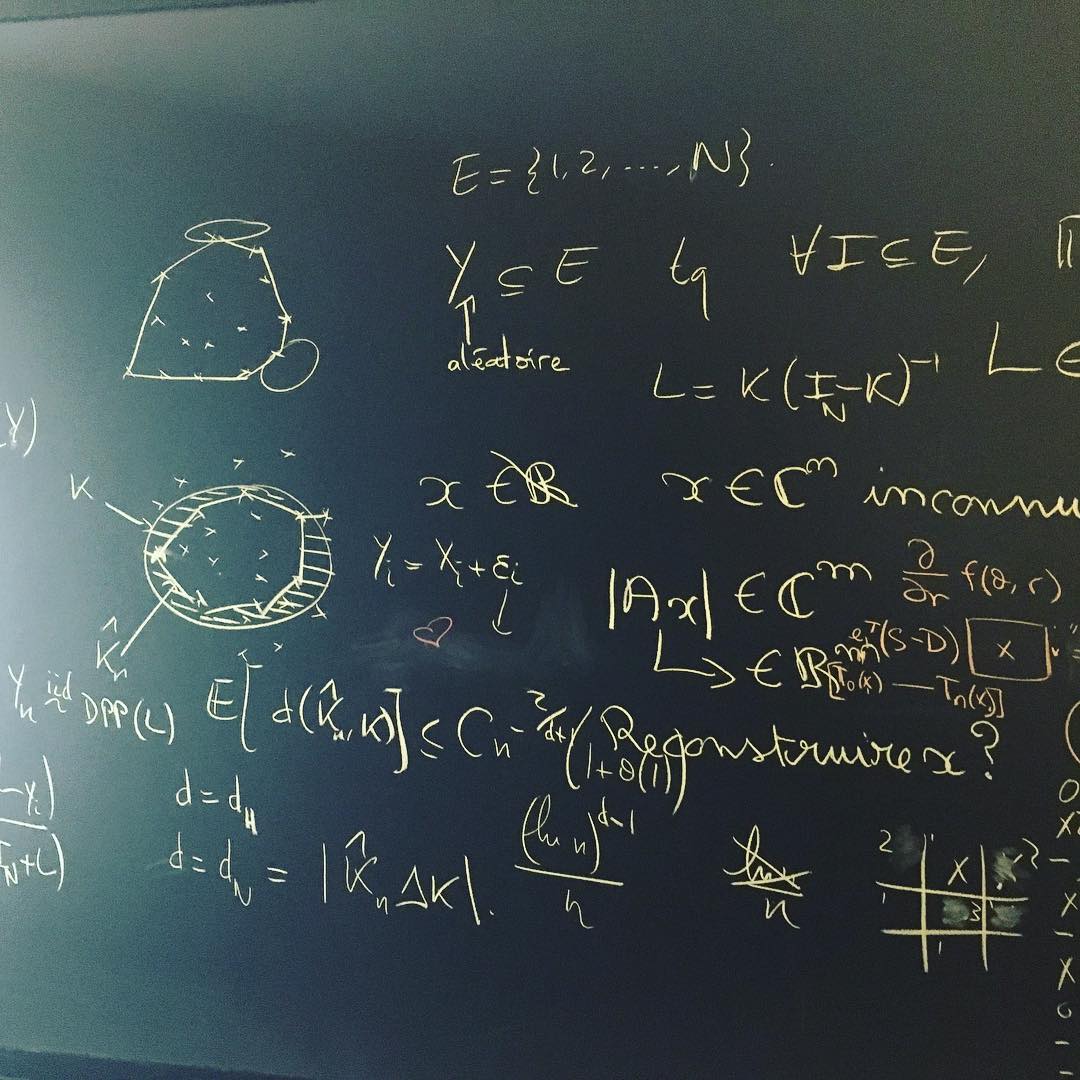 E = {1, 2, ..., N}.
Y ⊆ E tq ∀I ⊆ E,
aléatoire
L = K (I_N - K)^{-1} L ∈
Y)
K
x ∈ ℝ x ∈ ℂ^m inconnu
Y_i = X_i + ε_i
|Ax| ∈ ℂ^m ∂/∂r f(θ, r)
K̂_n
↳ ∈ ℝ (S-D) X
[T_0(x) — T_n(x)]
Y_n iid ~ DPP(L)
E[d(K̂_n, K)] ≤ C n^{-2/d+1} (1+o(1))
Reconstruire x ?
d = d_H
d = d_N = |K̂_n Δ K|. (ln n)^{d-1}/n ln/n
-Y_i)
I_N+L)
2 X 2
1 3
1
0
X
-
X
-
X
0
-
-